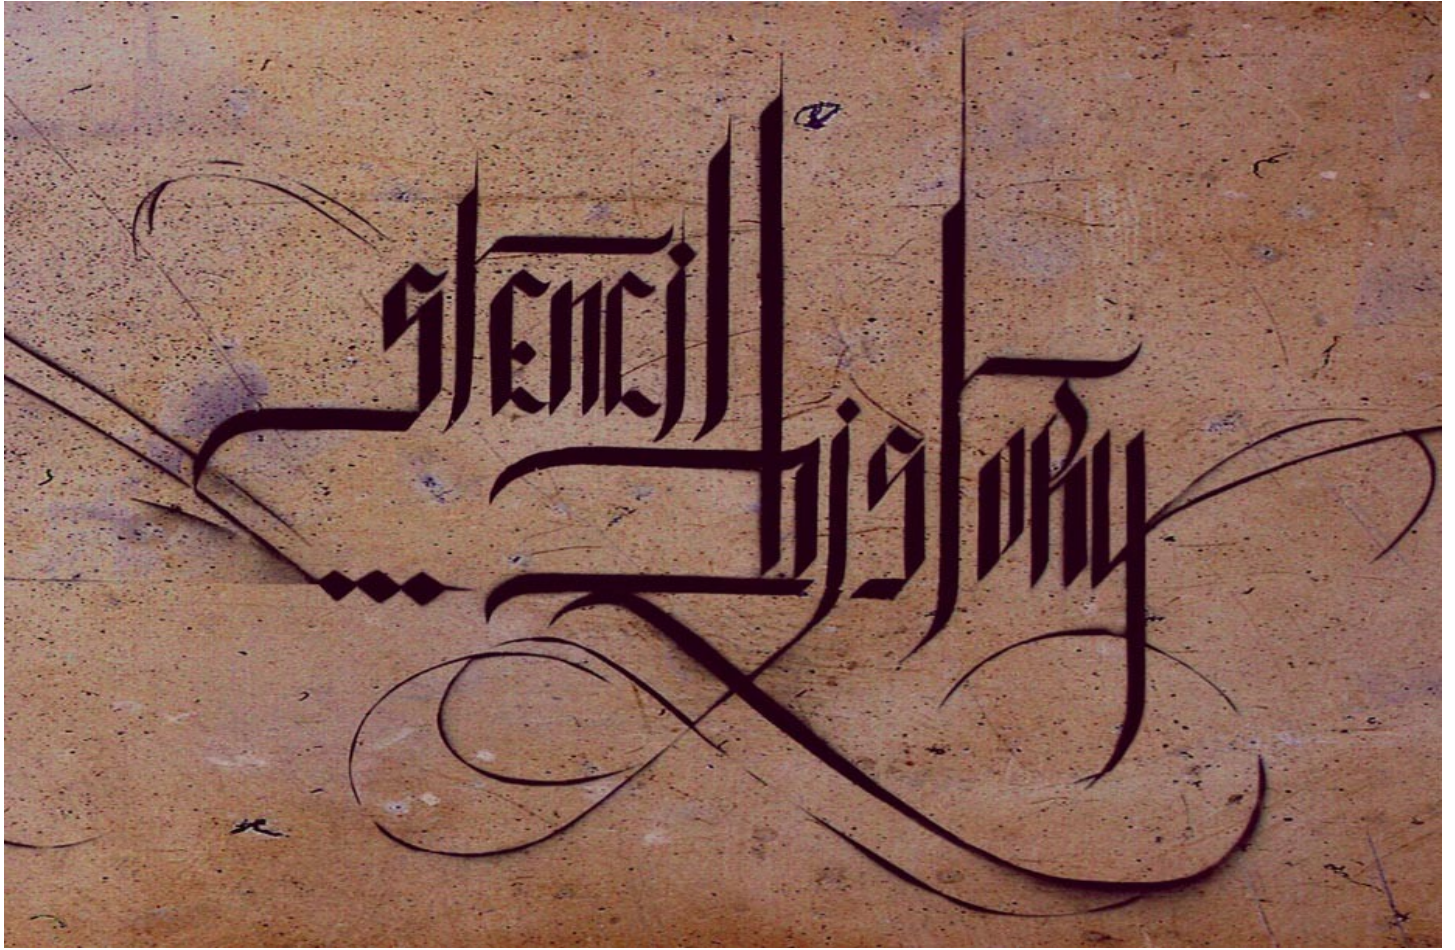 stencil
history